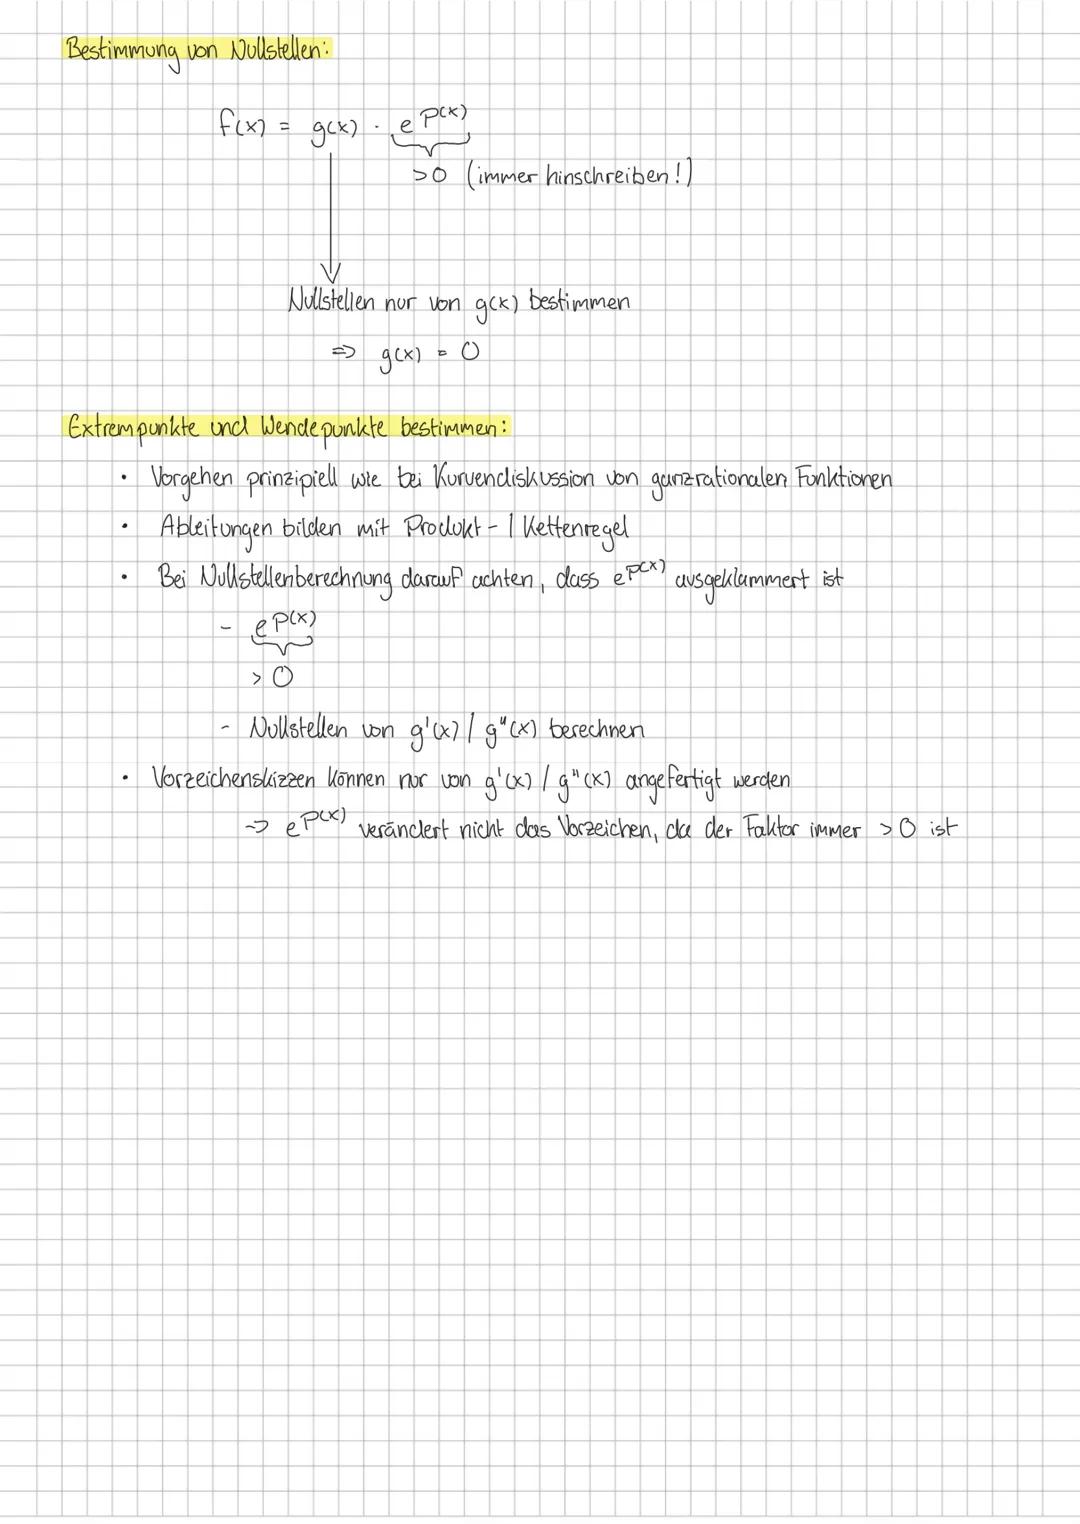 Bestimmung von Nullstellen:
f(x) = g(x) · e^p(x)
>0 (immer hinschreiben!)
Nullstellen nur von g(x) bestimmen
=> g(x) = 0
Extrempunkte und Wendepunkte bestimmen:
• Vorgehen prinzipiell wie bei Kurvendiskussion von ganzrationalen Funktionen
• Ableitungen bilden mit Produkt- / Kettenregel
• Bei Nullstellenberechnung darauf achten, dass e^p(x) ausgeklammert ist
- e^p(x)
> 0
- Nullstellen von g'(x) / g"(x) berechnen
• Vorzeichenskizzen können nur von g'(x) / g"(x) angefertigt werden
-> e^p(x) verändert nicht das Vorzeichen, da der Faktor immer >0 ist